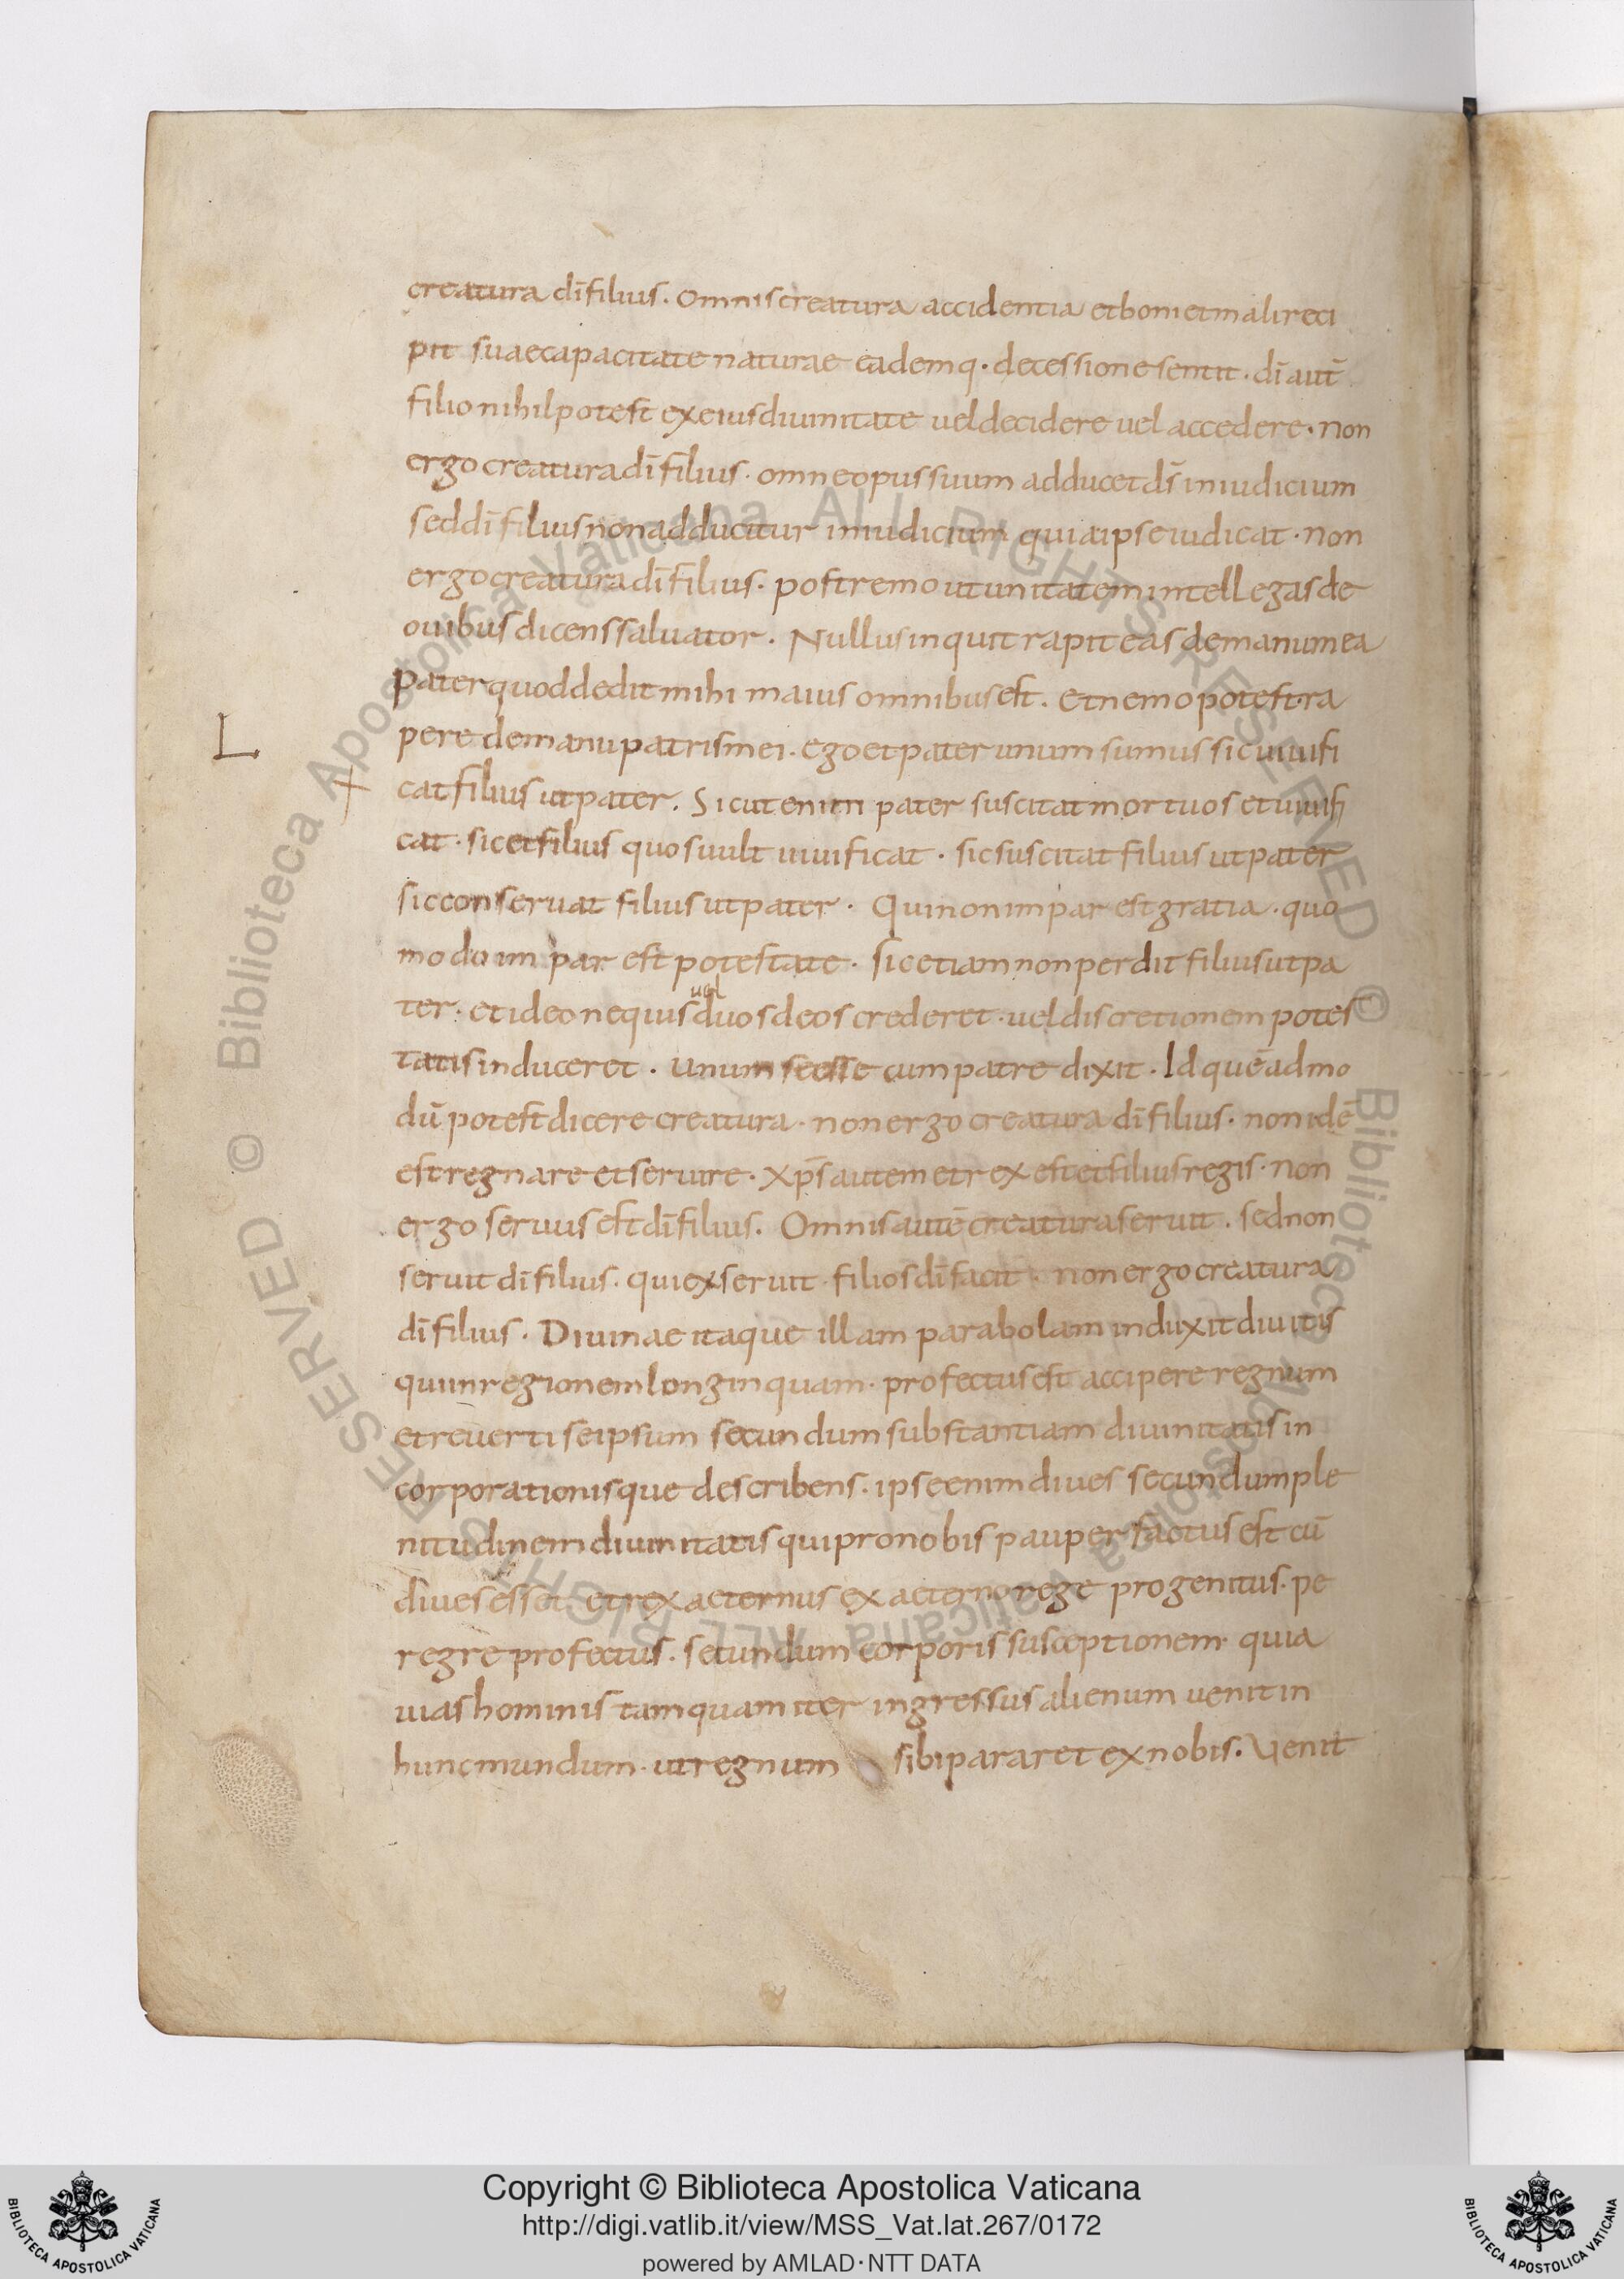 creatura dī filius. Omnis creatura accidentia et boni et mali reci
pit suae capacitate naturae eademq· decessione sentit· dī aut̄
filio nihil potest ex eius diuinitate uel decidere uel accedere· non
ergo creatura dī filius· omne opus suum adducet ds̄ in iudicium
sed dī filius non adducitur in iudicium quia ipse iudicat· non
ergo creatura dī filius· postremo ut unitatem intellegas de
ouibus dicens saluator. Nullus inquit rapit eas de manu mea
Pater quod dedit mihi maius omnibus est. et nemo potest ra
pere de manu patris mei. ego et pater unum sumus sic uiuifi
L
+
cat filius ut pater. Sicut enim pater suscitat mortuos et uiuifi
cat· sic et filius quos uult uiuificat· sic suscitat filius ut pater
sic conseruat filius ut pater· Qui non impar est gratia· quo
modo impar est potestate· sic etiam non perdit filius ut pa
uel
ter· et ideo nequis duos deos crederet· uel discretionem potes
tatis induceret. unum se esse cum patre dixit· Id quēadmo
dū potest dicere creatura· non ergo creatura dī filius· non idē
est regnare et seruire· xp̄s autem et rex est et filius regis· non
ergo seruus est dī filius. Omnis autē creatura seruit. sed non
seruit dī filius· qui ex seruit· filios dī facit· non ergo creatura
dī filius· Diuinae itaque illam parabolam induxit diuitis
qui in regionem longinquam· profectus est accipere regnum
et reuerti se ipsum secundum substantiam diuinitatis in
corporationisque describens· ipse enim diues secundum ple
nitudinem diuinitatis qui pro nobis pauper factus est cū
diues esset et rex aeternus ex aeterno rege progenitus· pe
regre profectus· secundum corporis susceptionem· quia
uias hominis tamquam iter ingressus alienum uenit in
hunc mundum· ut regnum sibi pararet ex nobis. Uenit
© Biblioteca Apostolica Vaticana ALL RIGHTS RESERVED
© Biblioteca Apostolica Vaticana ALL RIGHTS RESERVED
Copyright © Biblioteca Apostolica Vaticana
http://digi.vatlib.it/view/MSS_Vat.lat.267/0172
powered by AMLAD·NTT DATA
BIBLIOTECA APOSTOLICA VATICANA
BIBLIOTECA APOSTOLICA VATICANA